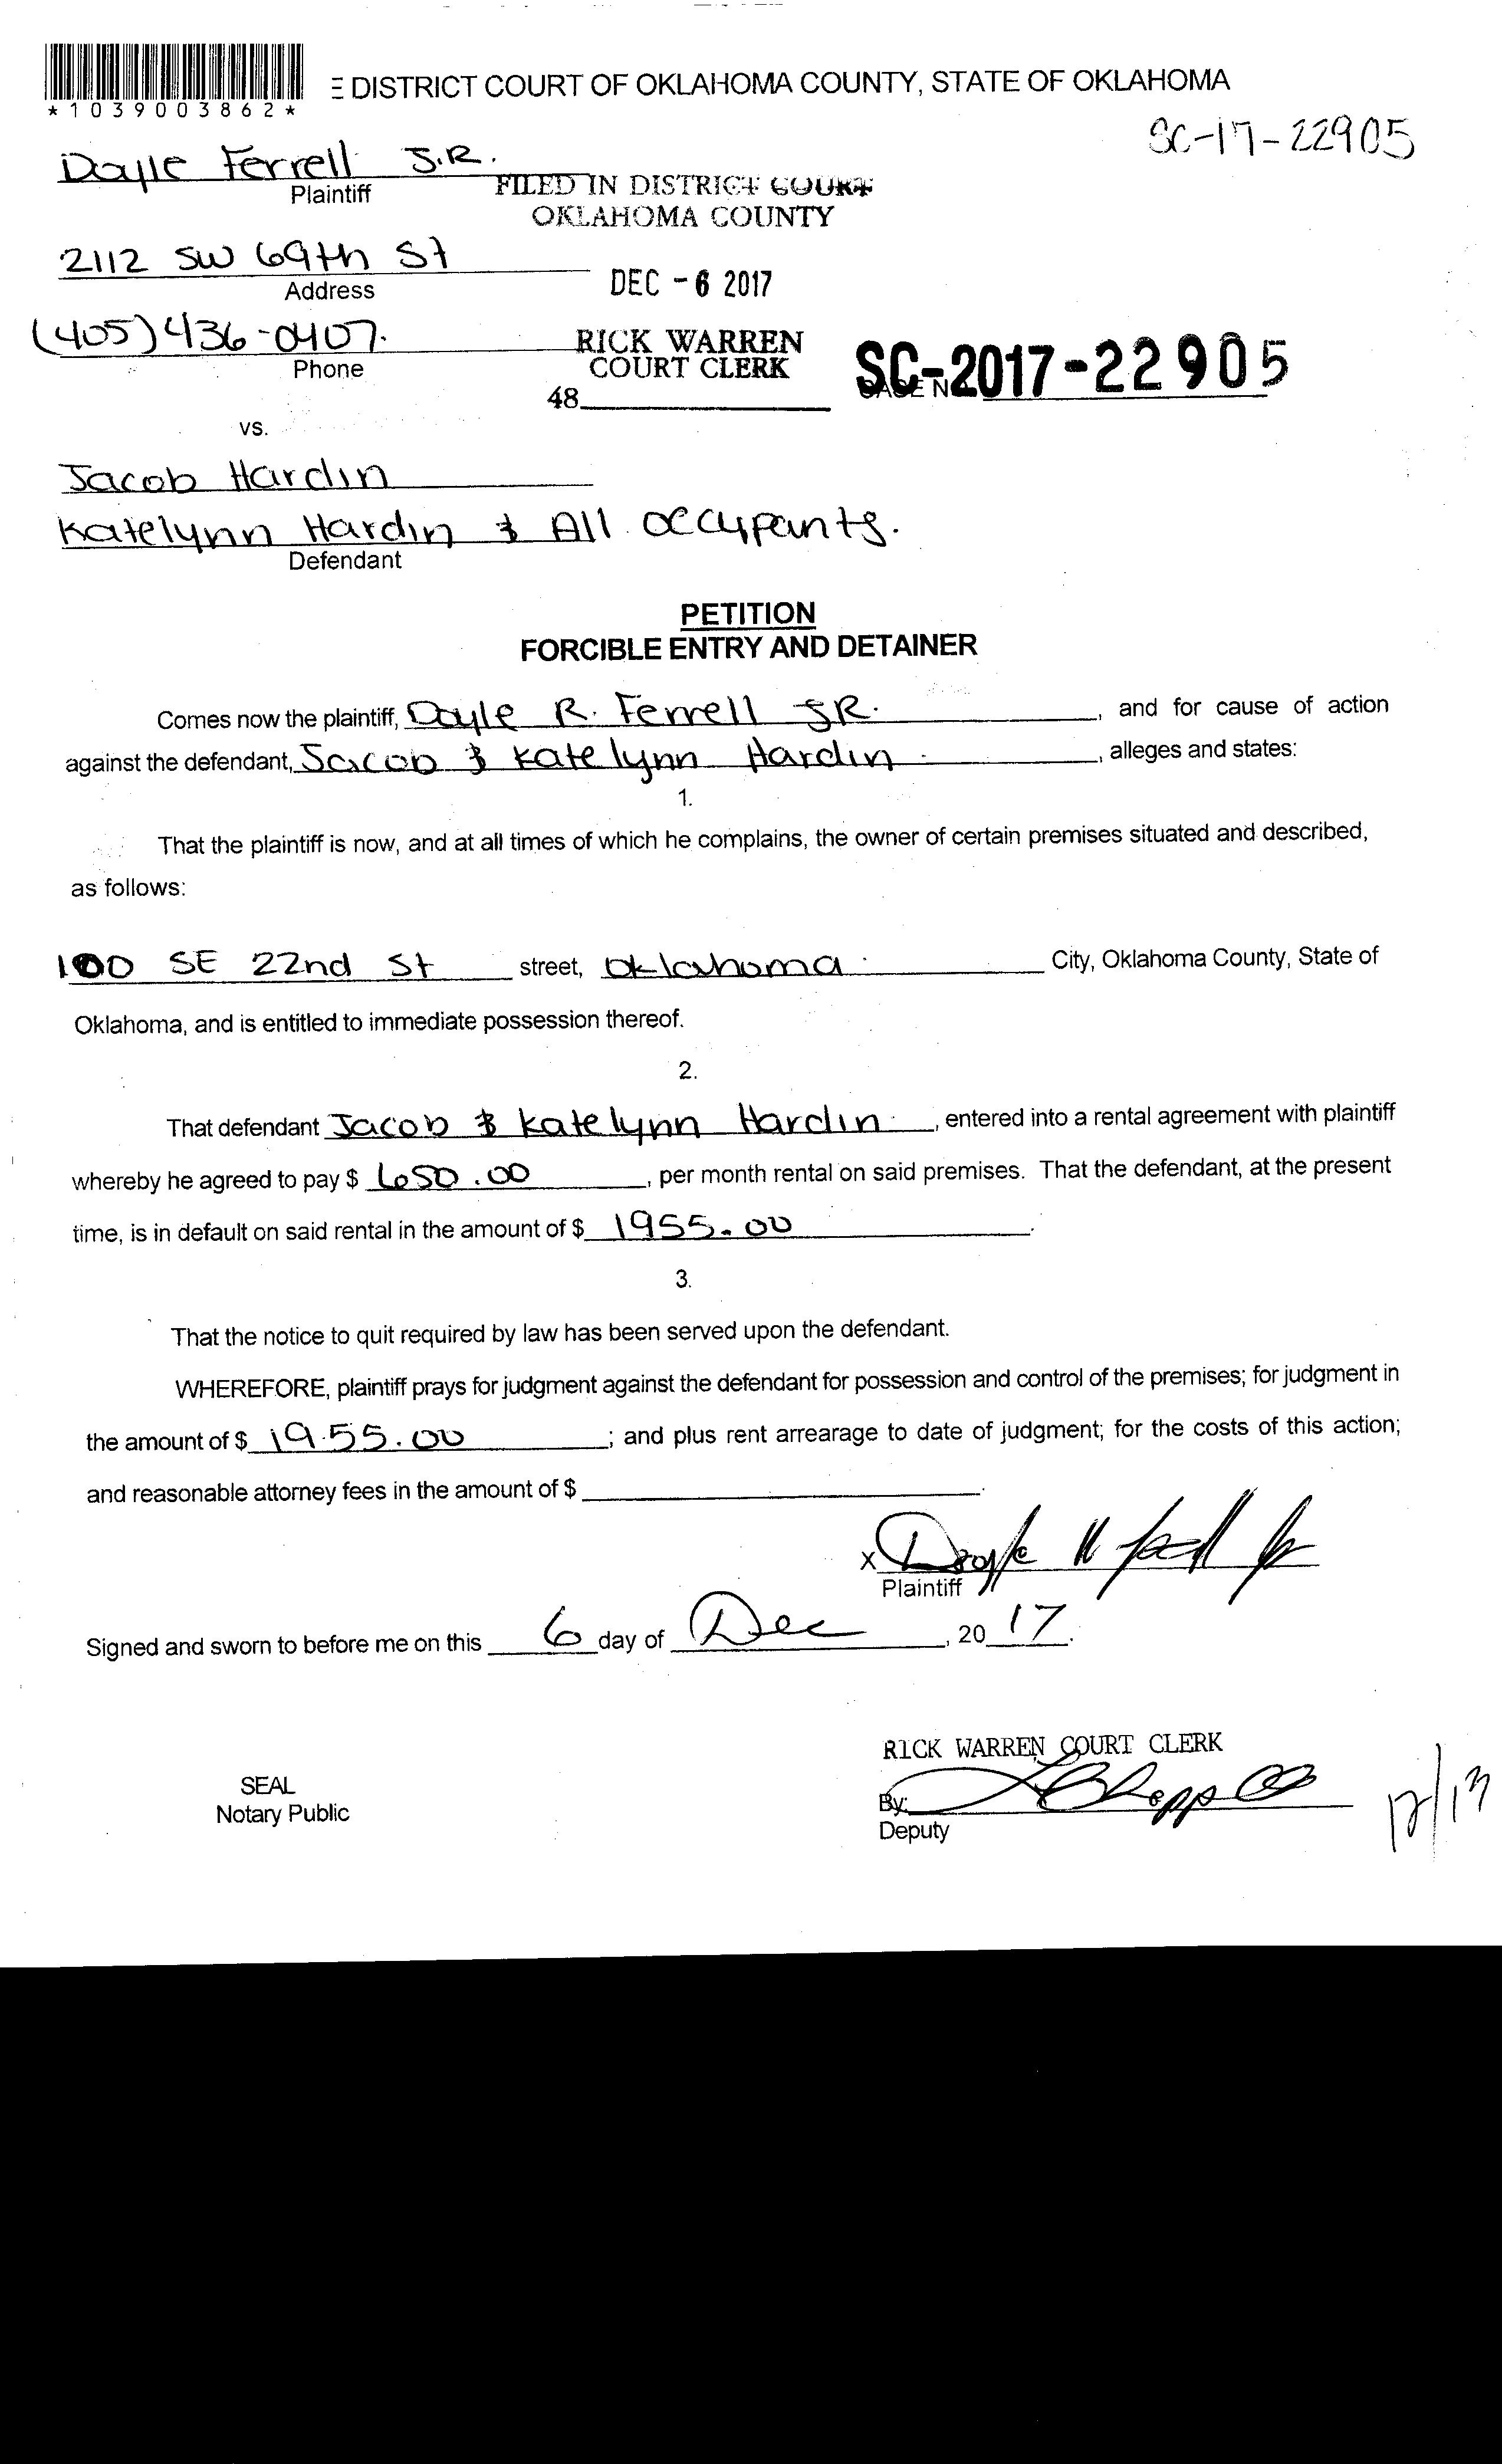 *1039003862*
E DISTRICT COURT OF OKLAHOMA COUNTY, STATE OF OKLAHOMA
SC-17-22905
Doyle Ferrell J.R.
Plaintiff
FILED IN DISTRICT COURT
OKLAHOMA COUNTY
2112 SW 69th St
Address
DEC - 6 2017
(405) 436-0407.
Phone
RICK WARREN
COURT CLERK
48
SC-2017-22905
CASE N
vs.
Jacob Hardin
Katelynn Hardin & All occupants.
Defendant
PETITION
FORCIBLE ENTRY AND DETAINER
Comes now the plaintiff, Doyle R. Ferrell JR. , and for cause of action
against the defendant, Jacob & Katelynn Hardin , alleges and states:
1.
That the plaintiff is now, and at all times of which he complains, the owner of certain premises situated and described,
as follows:
100 SE 22nd St street, Oklahoma City, Oklahoma County, State of
Oklahoma, and is entitled to immediate possession thereof.
2.
That defendant Jacob & Katelynn Hardin , entered into a rental agreement with plaintiff
whereby he agreed to pay $ 650.00 , per month rental on said premises. That the defendant, at the present
time, is in default on said rental in the amount of $ 1955.00 .
3.
That the notice to quit required by law has been served upon the defendant.
WHEREFORE, plaintiff prays for judgment against the defendant for possession and control of the premises; for judgment in
the amount of $ 1955.00 ; and plus rent arrearage to date of judgment; for the costs of this action;
and reasonable attorney fees in the amount of $ .
X
Plaintiff
Signed and sworn to before me on this 6 day of Dec , 20 17.
RICK WARREN COURT CLERK
SEAL
Notary Public
By:
Deputy
12/13